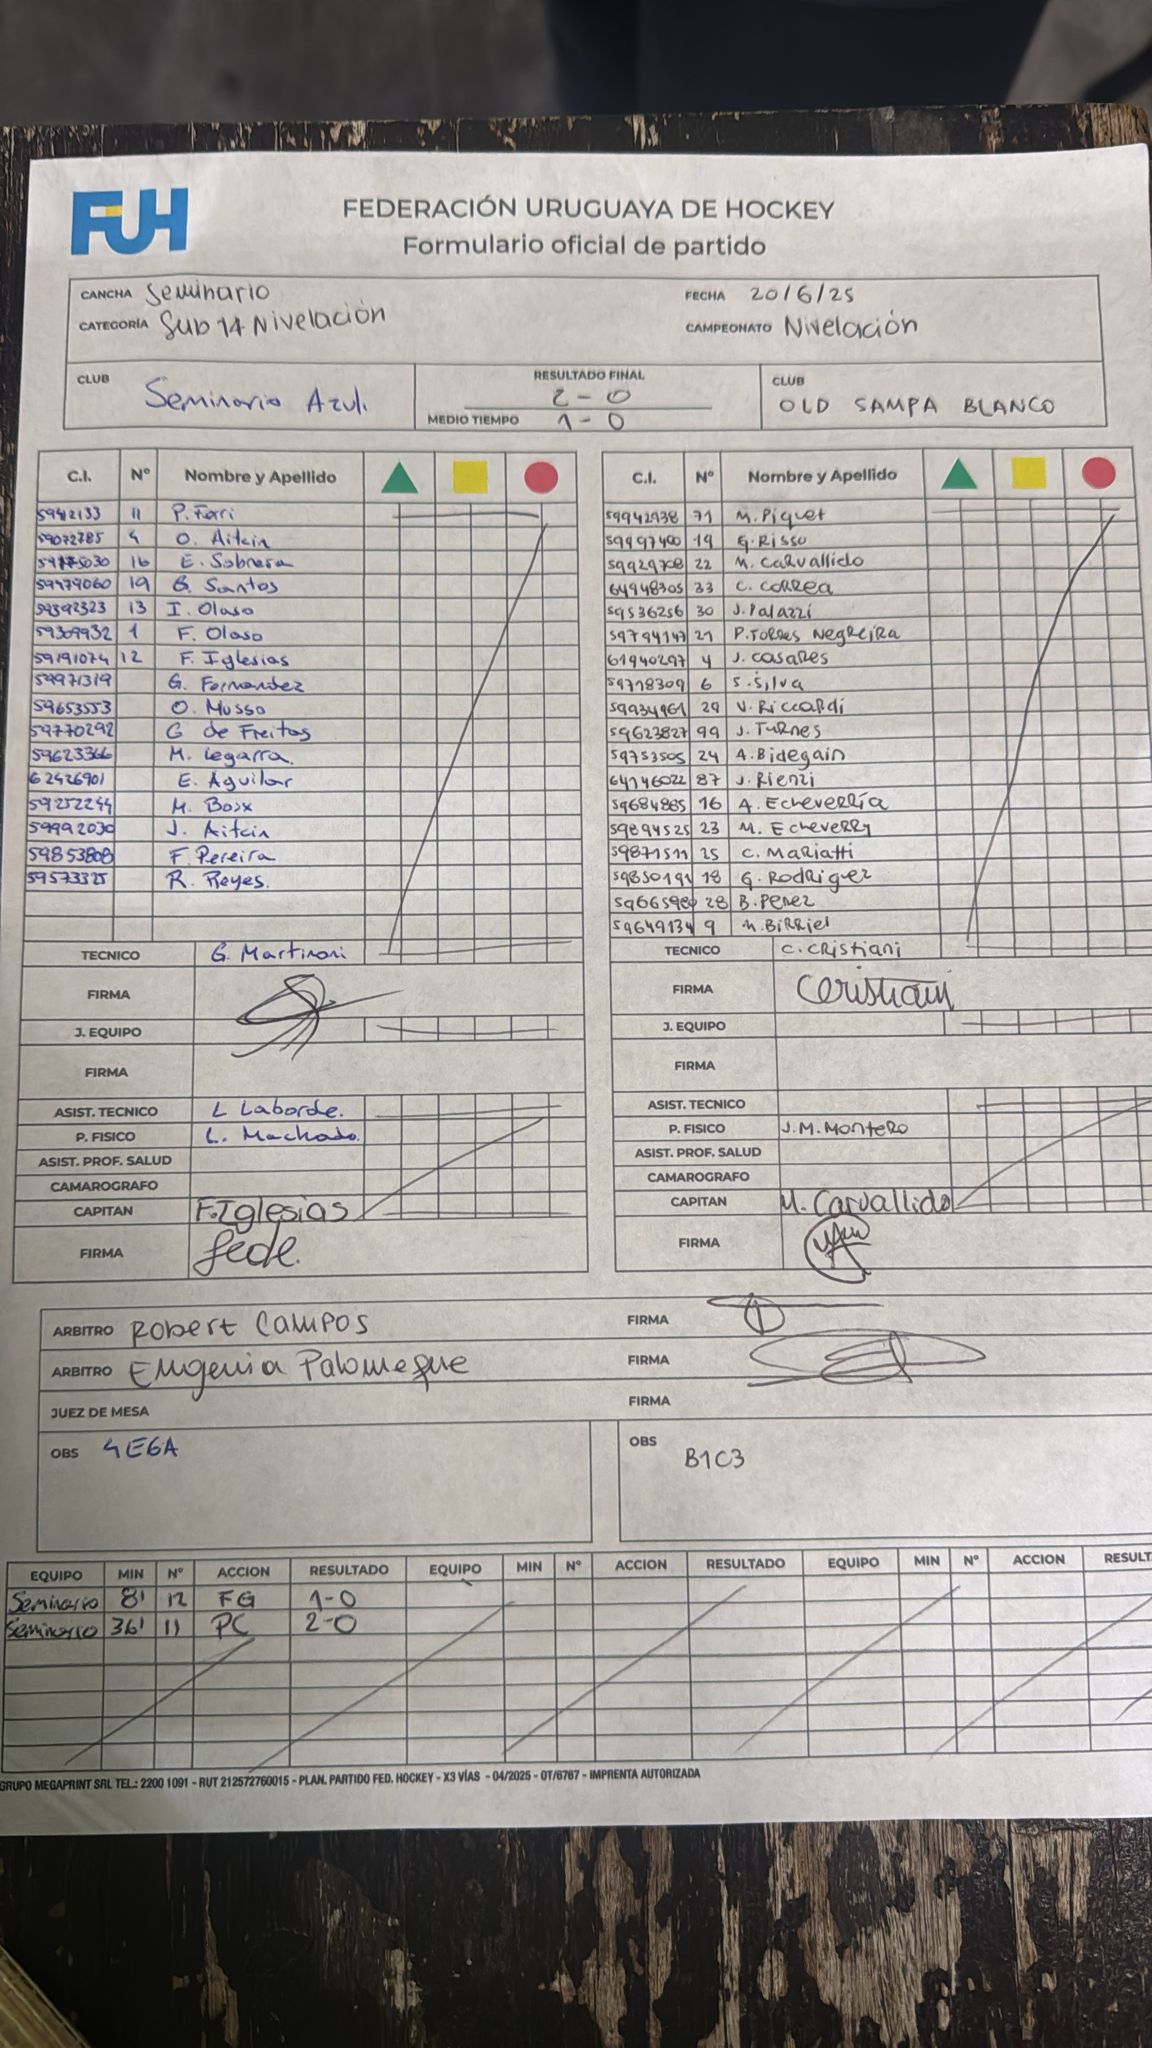 FUH
FEDERACIÓN URUGUAYA DE HOCKEY
Formulario oficial de partido
CANCHA Seminario
FECHA 20/6/25
CATEGORÍA Sub 14 Nivelación
CAMPEONATO Nivelación
CLUB Seminario Azul.
RESULTADO FINAL 2-0
MEDIO TIEMPO 1-0
CLUB OLD SAMPA BLANCO
C.I. Nº Nombre y Apellido
11 P. Ferri
59072785 4 O. Aitcin
16 E. Sobrera
59479060 19 G. Santos
59392323 13 I. Olaso
59309932 1 F. Olaso
59191074 12 F. Iglesias
59971319 G. Fernandez
59653553 O. Musso
59770292 G de Freitas
59623366 M. Legarra.
62426901 E. Aguilar
59252244 M. Boix
59992030 J. Aitcin
59853808 F. Pereira
59573325 R. Reyes.
TECNICO G. Martinoni
FIRMA
J. EQUIPO
FIRMA
ASIST. TECNICO L Laborde.
P. FISICO L. Machado.
ASIST. PROF. SALUD
CAMAROGRAFO
CAPITAN F. Iglesias
FIRMA fede.
C.I. Nº Nombre y Apellido
59942938 71 M. Piquet
59997400 19 G. Risso
59929708 22 M. Carvallido
64948305 33 C. Correa
59536256 30 J. Palazzi
59794147 21 P. Torres Negreira
61940297 4 J. Casares
59718309 6 S. Silva
59934961 29 V. Riccardi
59623827 99 J. Turnes
59753505 24 A. Bidegain
64146022 87 J. Rienzi
59684885 16 A. Echeverría
59894525 23 M. Echeverry
59871511 25 C. Mariatti
59850191 18 G. Rodriguez
28 B. Perez
59649134 9 M. Birriel
TECNICO C. Cristiani
FIRMA Cristiani
J. EQUIPO
FIRMA
ASIST. TECNICO
P. FISICO J.M. Montero
ASIST. PROF. SALUD
CAMAROGRAFO
CAPITAN M. Carvallido
FIRMA
ARBITRO Robert Campos FIRMA
ARBITRO Eugenia Palomeque FIRMA
JUEZ DE MESA FIRMA
OBS 4EGA
OBS B1C3
EQUIPO MIN Nº ACCION RESULTADO EQUIPO MIN Nº ACCION RESULTADO EQUIPO MIN Nº ACCION RESULT
Seminario 8' 12 FG 1-0
Seminario 36' 11 PC 2-0
GRUPO MEGAPRINT SRL TEL.: 2200 1091 - RUT 212572760015 - PLAN. PARTIDO FED. HOCKEY - X3 VÍAS - 04/2025 - OT/6767 - IMPRENTA AUTORIZADA